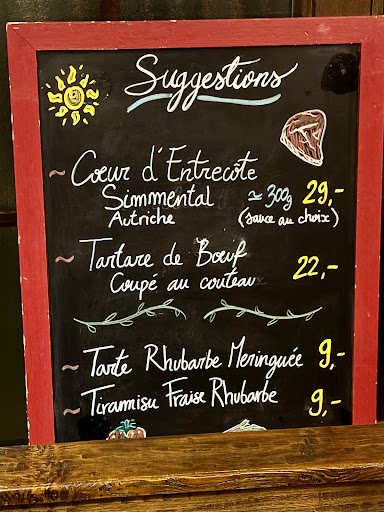 Suggestions
~ Cœur d'Entrecôte
Simmental ≃ 300g 29,-
Autriche (sauce au choix)
~ Tartare de Bœuf
Coupé au couteau 22,-
~ Tarte Rhubarbe Meringuée 9,-
~ Tiramisu Fraise Rhubarbe 9,-